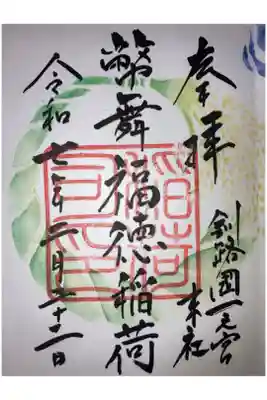 奉拝
釧路国一之宮
末社
幣舞福徳稲荷
令和七年二月二十二日